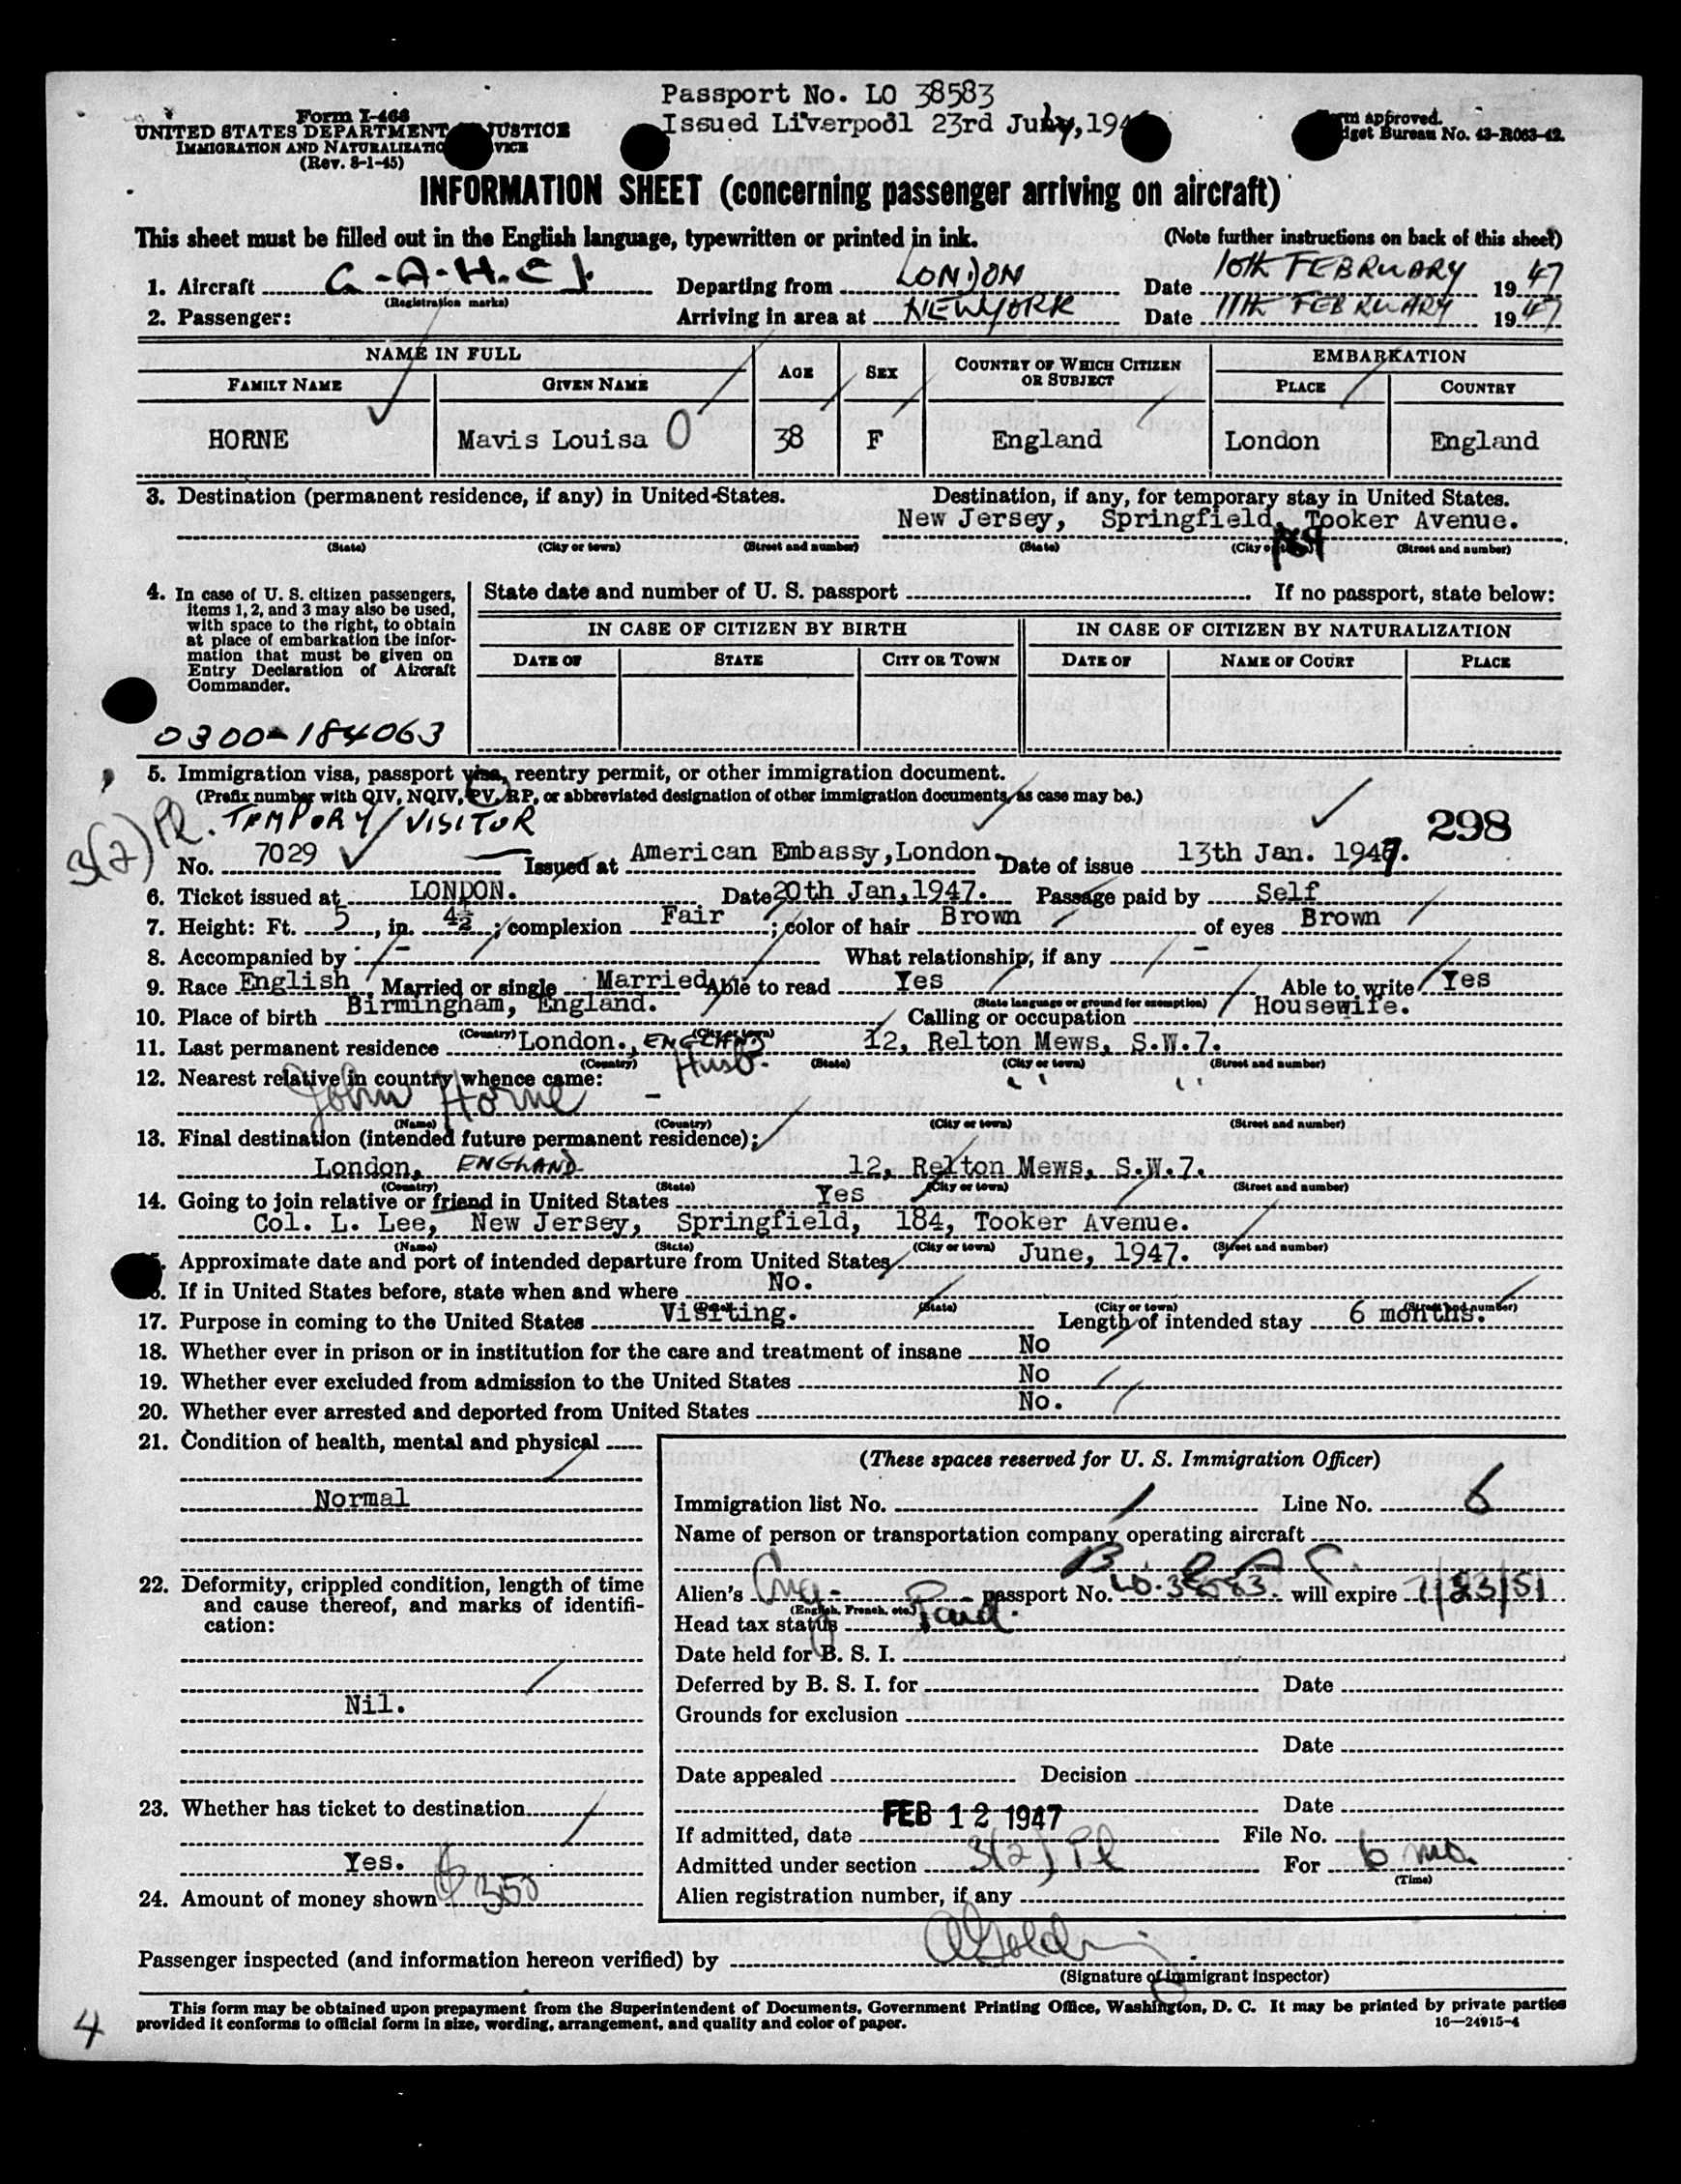 Passport No. LO 38583
Issued Liverpool 23rd July, 194
Form I-466
UNITED STATES DEPARTMENT JUSTICE
IMMIGRATION AND NATURALIZATIO VICE
(Rev. 8-1-45)
rm approved.
dget Bureau No. 43-R063-42.
INFORMATION SHEET (concerning passenger arriving on aircraft)
This sheet must be filled out in the English language, typewritten or printed in ink. (Note further instructions on back of this sheet)
1. Aircraft G-A-H-C J. Departing from LONDON Date 10th FEBRUARY 1947
(Registration marks)
2. Passenger: Arriving in area at NEW YORK Date 11th FEBRUARY 1947
NAME IN FULL AGE SEX COUNTRY OF WHICH CITIZEN OR SUBJECT EMBARKATION
FAMILY NAME GIVEN NAME PLACE COUNTRY
HORNE Mavis Louisa O 38 F England London England
3. Destination (permanent residence, if any) in United States. Destination, if any, for temporary stay in United States.
New Jersey, Springfield, Tooker Avenue.
(State) (City or town) (Street and number) (State) (City or town) (Street and number)
184
4. In case of U. S. citizen passengers, items 1, 2, and 3 may also be used, with space to the right, to obtain at place of embarkation the information that must be given on Entry Declaration of Aircraft Commander.
State date and number of U. S. passport If no passport, state below:
IN CASE OF CITIZEN BY BIRTH IN CASE OF CITIZEN BY NATURALIZATION
DATE OF STATE CITY OR TOWN DATE OF NAME OF COURT PLACE
0300-184063
5. Immigration visa, passport visa, reentry permit, or other immigration document.
(Prefix number with QIV, NQIV, PV, RP, or abbreviated designation of other immigration documents, as case may be.)
3(2) Pl. TEMPORY VISITOR
298
No. 7029 Issued at American Embassy, London. Date of issue 13th Jan. 1947.
6. Ticket issued at LONDON. Date 20th Jan, 1947. Passage paid by Self
7. Height: Ft. 5, in. 4½; complexion Fair; color of hair Brown of eyes Brown
8. Accompanied by - What relationship, if any -
9. Race English Married or single Married Able to read Yes Able to write Yes
(State language or ground for exemption)
10. Place of birth Birmingham, England. Calling or occupation Housewife.
(Country) (City or town)
11. Last permanent residence London., ENGLAND 12, Relton Mews, S.W.7.
(Country) (State) (City or town) (Street and number)
12. Nearest relative in country whence came: Husb.
John Horne - " "
(Name) (Country) (City or town) (Street and number)
13. Final destination (intended future permanent residence);
London, ENGLAND 12, Relton Mews, S.W.7.
(Country) (State) (City or town) (Street and number)
14. Going to join relative or friend in United States Yes
Col. L. Lee, New Jersey, Springfield, 184, Tooker Avenue.
(Name) (State) (City or town) (Street and number)
. Approximate date and port of intended departure from United States June, 1947.
6. If in United States before, state when and where No.
(Date) (State) (City or town) (Street and number)
17. Purpose in coming to the United States Visiting. Length of intended stay 6 months.
18. Whether ever in prison or in institution for the care and treatment of insane No
19. Whether ever excluded from admission to the United States No
20. Whether ever arrested and deported from United States No.
21. Condition of health, mental and physical
Normal
22. Deformity, crippled condition, length of time and cause thereof, and marks of identification:
Nil.
23. Whether has ticket to destination
Yes.
24. Amount of money shown $350
(These spaces reserved for U. S. Immigration Officer)
Immigration list No. 1 Line No. 6
Name of person or transportation company operating aircraft
B. O. A. C.
Alien's Eng- passport No. LO.38583 will expire 7/23/51
(English, French, etc.)
Head tax status Paid.
Date held for B. S. I.
Deferred by B. S. I. for Date
Grounds for exclusion
Date
Date appealed Decision
Date
If admitted, date FEB 12 1947 File No.
Admitted under section 3(2) Pl For 6 mo.
(Time)
Alien registration number, if any
Passenger inspected (and information hereon verified) by
(Signature of immigrant inspector)
This form may be obtained upon prepayment from the Superintendent of Documents, Government Printing Office, Washington, D. C. It may be printed by private parties
provided it conforms to official form in size, wording, arrangement, and quality and color of paper. 16—24915-4
4